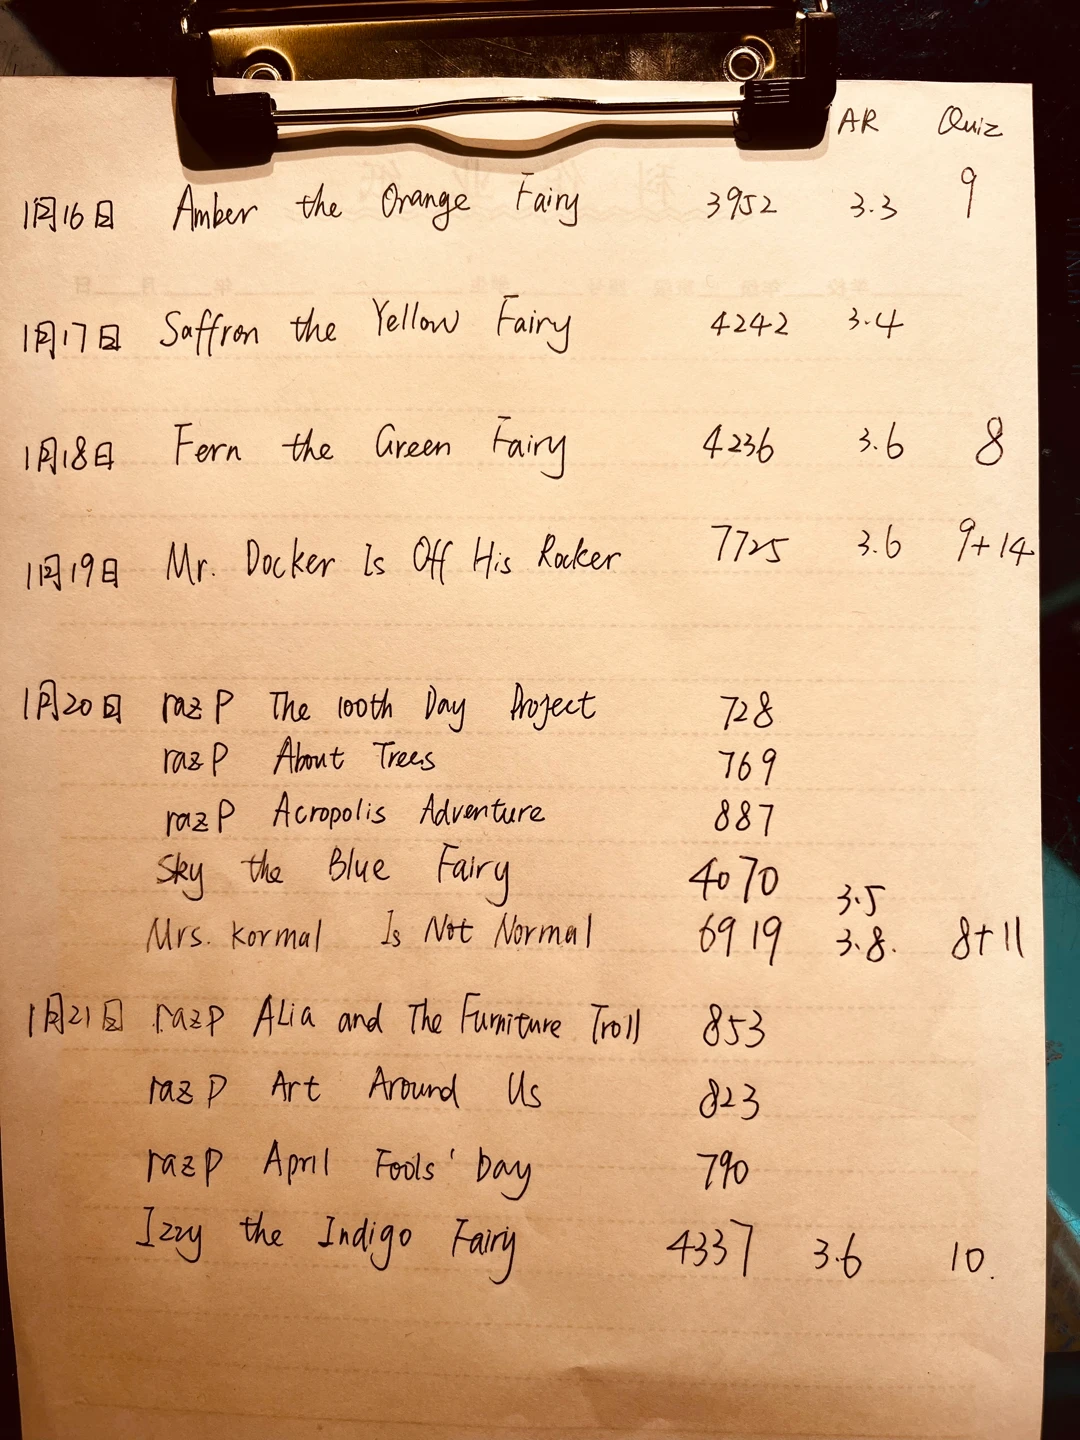 AR Quiz
1月16日 Amber the Orange Fairy 3952 3.3 9
1月17日 Saffron the Yellow Fairy 4242 3.4
1月18日 Fern the Green Fairy 4236 3.6 8
1月19日 Mr. Docker Is Off His Rocker 7725 3.6 9+14
1月20日 raz P The 100th Day Project 728
raz P About Trees 769
raz P Acropolis Adventure 887
Sky the Blue Fairy 4070 3.5
Mrs. Kormal Is Not Normal 6919 3.8. 8+11
1月21日 raz P ALia and The Furniture Troll 853
raz P Art Around Us 823
raz P April Fools' Day 790
Izzy the Indigo Fairy 4337 3.6 10.